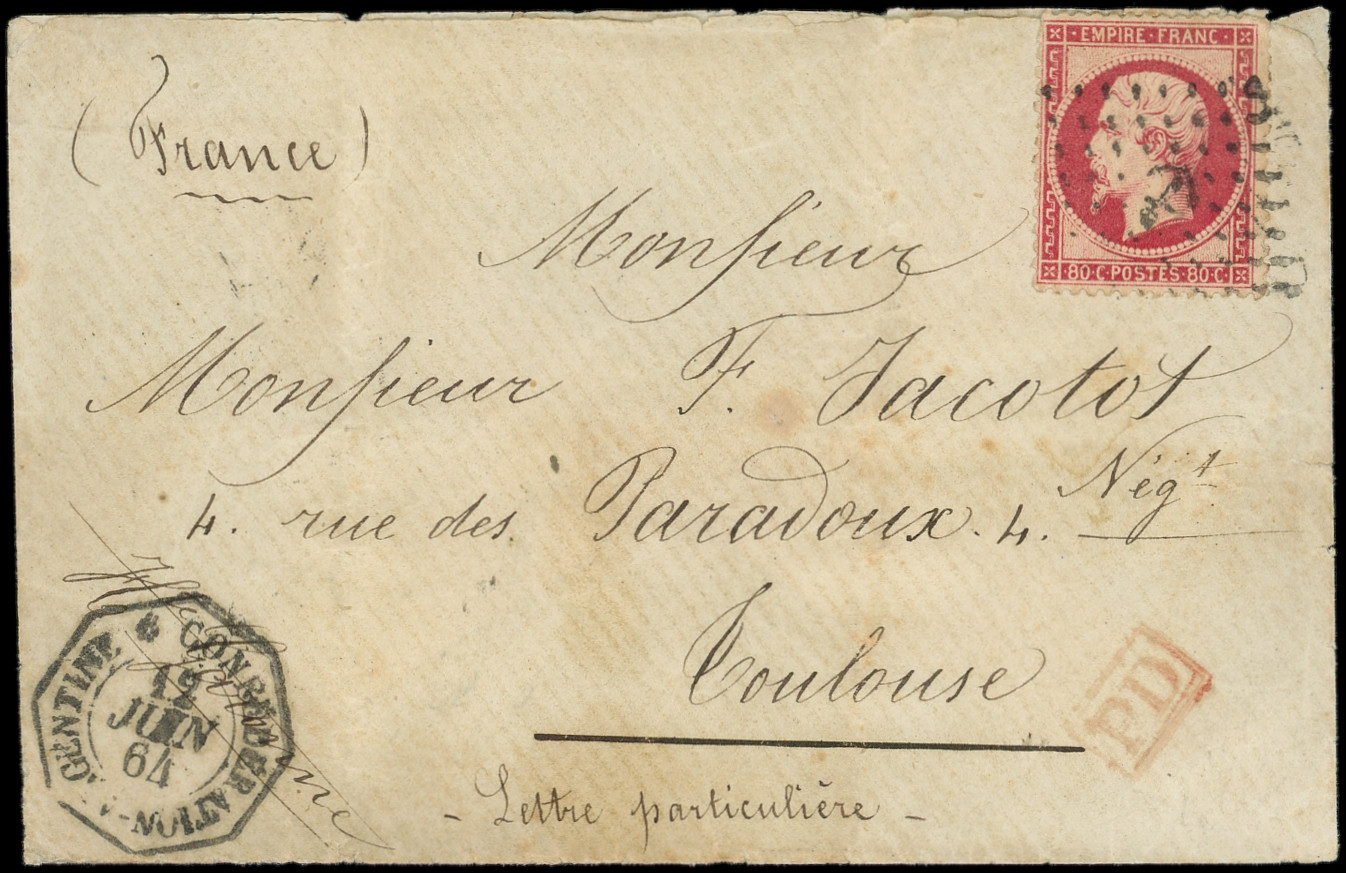 EMPIRE · FRANC ·
80 · C · POSTES · 80 · C
(France)
Monsieur
Monsieur F. Jacotot
Négt
4. rue des Paradoux. 4.
Toulouse
- Lettre particulière -
PD
CONFÉDÉRATION-ARGENTINE
12
JUIN
64